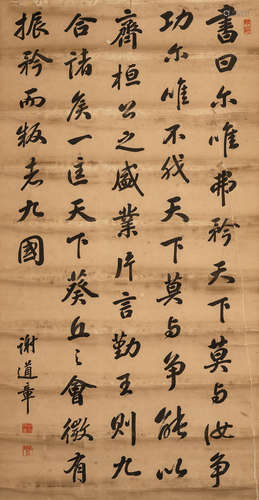 書曰尔唯弗矜天下莫与汝争
功尔唯不伐天下莫与争能以
齊桓公之盛業片言勤王則九
合諸矦一匡天下葵丘之會微有
振矜而叛者九國
謝道章